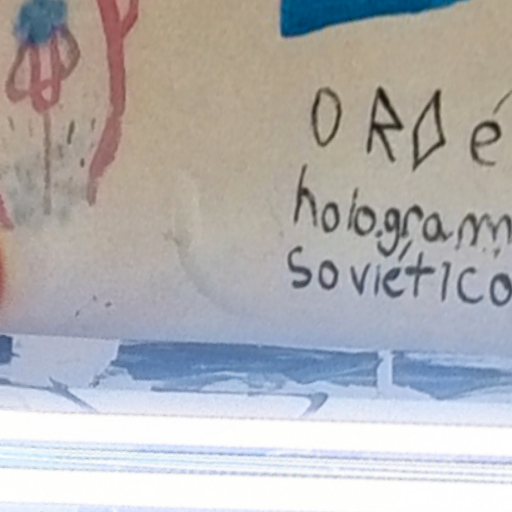 ORD é
hologram
soviético